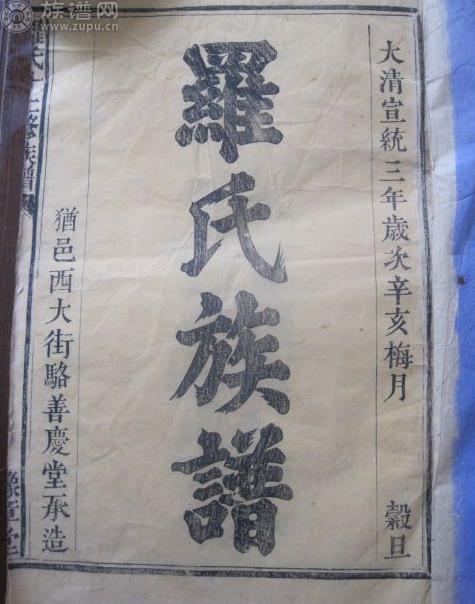 族谱网
www.zupu.cn
大清宣統三年歳次辛亥梅月 穀旦
羅氏族譜
猶邑西大街駱善慶堂承造
氏
修族譜
豫章堂